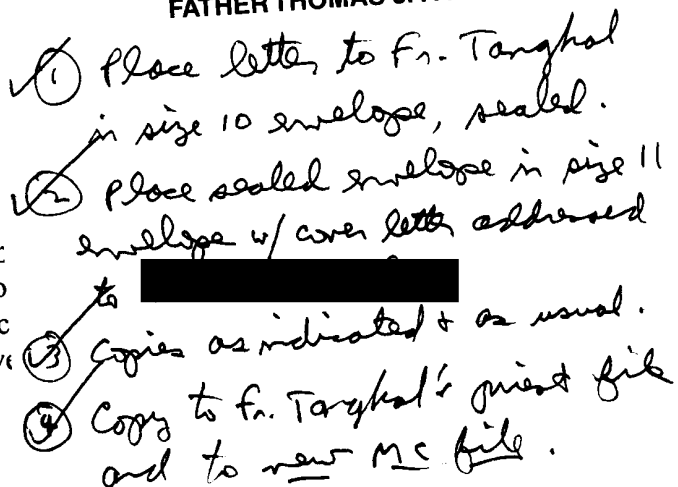 FATHER THOMAS
① Place letter to Fr. Tanghal
in size 10 envelope, sealed.
② Place sealed envelope in size 11
envelope w/ cover letter addressed
to
③ Copies as indicated & as usual.
④ Copy to Fr. Tanghal's priest file
and to new MC file.